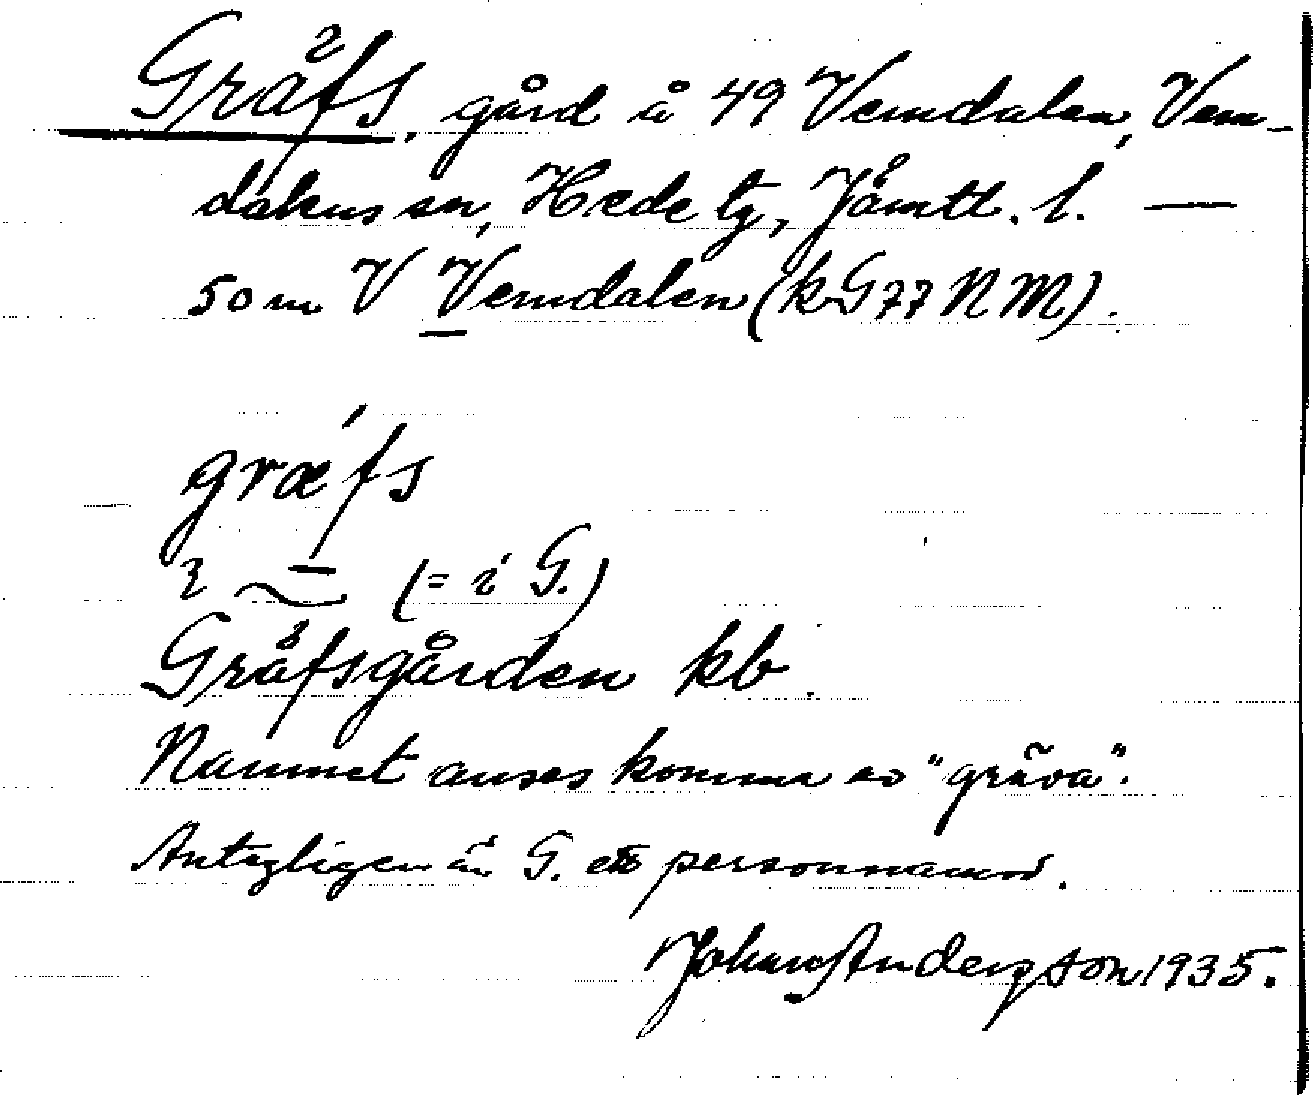 Gräfs, gård å 49 Vemdalen, Vem-
dalens sn, Hede tg, Jämtl. l. —
50 m V Vemdalen (kG77NM).
græfs
(= i G.)
Gräfsgården kb.
Namnet anses komma av "gräva".
Antagligen är G. ett personnamn.
Johan Andersson 1935.